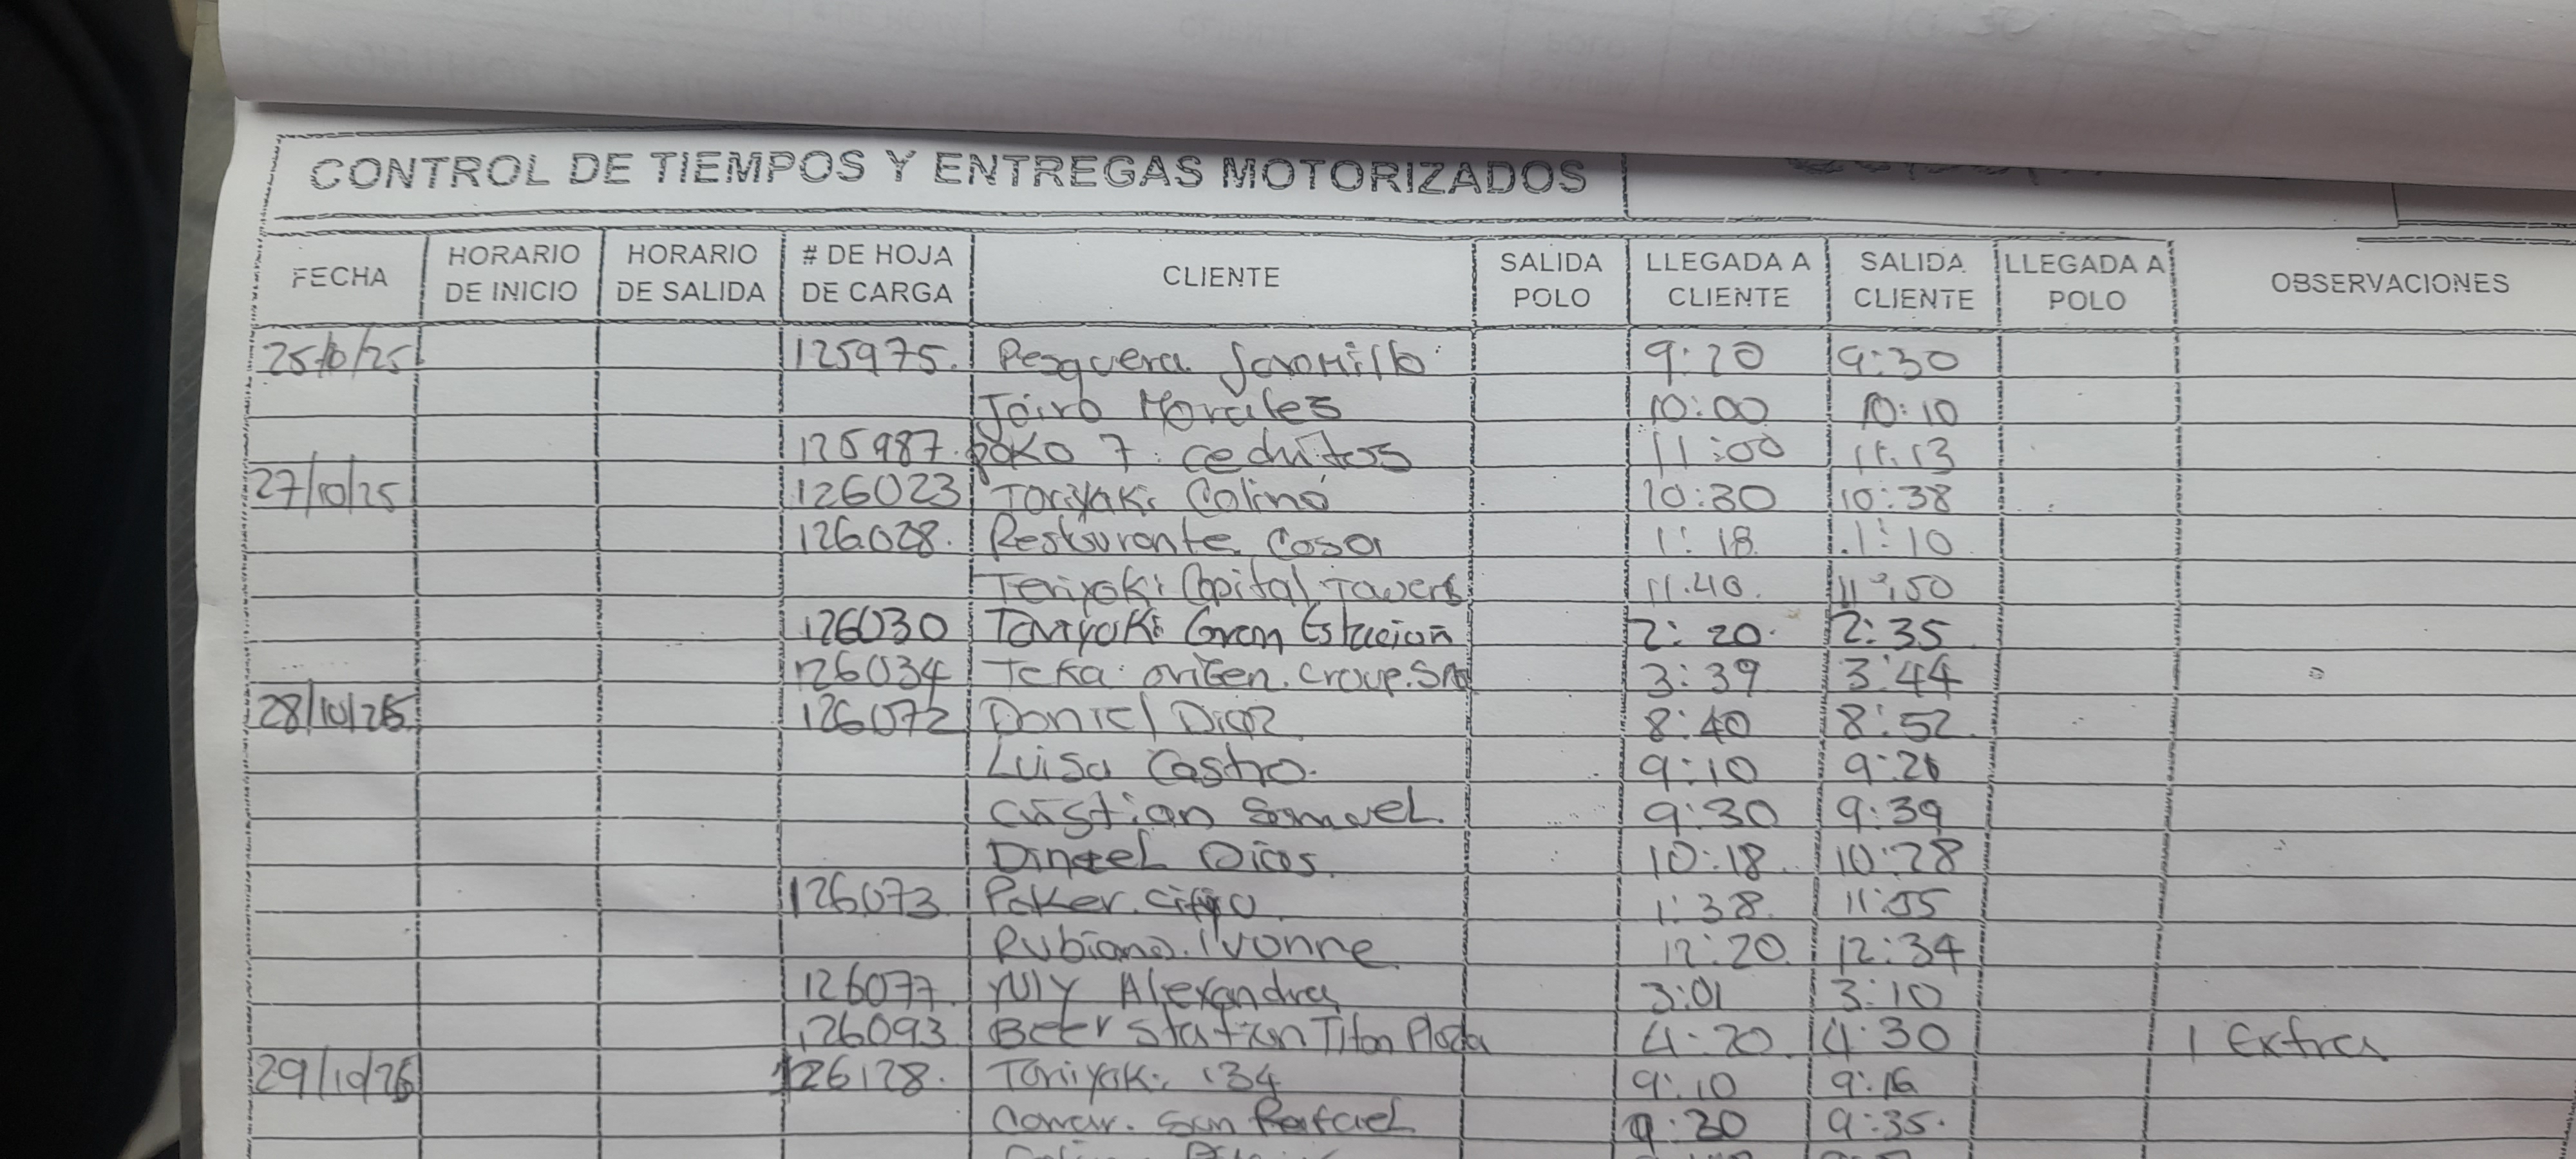 CONTROL DE TIEMPOS Y ENTREGAS MOTORIZADOS
FECHA HORARIO DE INICIO HORARIO DE SALIDA # DE HOJA DE CARGA CLIENTE SALIDA POLO LLEGADA A CLIENTE SALIDA CLIENTE LLEGADA A POLO OBSERVACIONES
25/10/25 125975. Pesquera Jaramillo 9:20 9:30
Jairo Morales 10:00 10:10
125987. poko 7. cedritos 11:00 11:13
27/10/25 126023 Toriyaki Colina 10:30 10:38
126028. Restaurante Casa 1:18 1:10
Teriyaki Capital Towers 11.40. 11:50
126030 Toriyaki Gran Estacion 2:20. 2:35
126034 Teka. origen. Group. 3:39 3:44
28/10/25 126072 Daniel Diaz 8:40 8:52
Luisa Castro. 9:10 9:20
Cristian Samuel. 9:30 9:39
Dinael 10:18 10:28
126073 Poker. 1:38 11:55
Rubiano. Ivonne 12:20 12:34
126077. Yuly Alexandra 3:01 3:10
126093 Beer Station Titan Plaza 4:20 4:30 1 Extra
29/10/25 126128. Toriyaki 134 9:10 9:16
San Rafael 9:30 9:35.